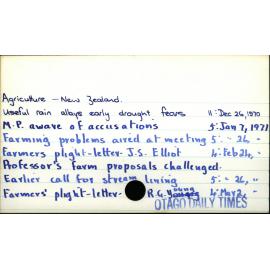 Agriculture — New Zealand.
Useful rain allays early drought fears 11: Dec 26, 1970
M.P. aware of accusations 5: Jan 7, 1971
Farming problems aired at meeting 5: " 26, "
Farmers plight-letter- J.S. Elliot 4: Feb 24, "
Professor's farm proposals challenged.
Earlier call for stream lining 5: - 26, "
Farmers' plight-letter- R.G. Young 4: Mar 2, "
OTAGO DAILY TIMES